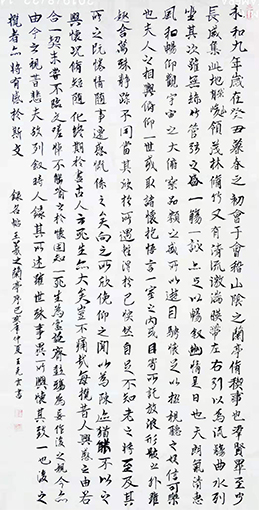 永和九年歲在癸丑暮春之初會于會稽山陰之蘭亭脩禊事也羣賢畢至少
長咸集此地有崇山峻領茂林脩竹又有清流激湍暎帶左右引以為流觴曲水列
坐其次雖無絲竹管弦之盛一觴一詠亦足以暢敘幽情是日也天朗氣清惠
風和暢仰觀宇宙之大俯察品類之盛所以遊目騁懷足以極視聽之娛信可樂
也夫人之相與俯仰一世或取諸懷抱悟言一室之內或因寄所託放浪形骸之外雖
趣舍萬殊靜躁不同當其欣於所遇暫得於己快然自足不知老之將至及其
所之既惓情隨事遷感慨係之矣向之所欣俛仰之間以為陳迹猶不能不以之
興懷況脩短隨化終期於盡古人云死生亦大矣豈不痛哉每攬昔人興感之由若
合一契未嘗不臨文嗟悼不能喻之於懷固知一死生為虛誕齊彭殤為妄作後之視今亦
由今之視昔悲夫故列敘時人錄其所述雖世殊事異所以興懷其致一也後之
攬者亦將有感於斯文
王羲之蘭亭序己亥年仲夏王克士書